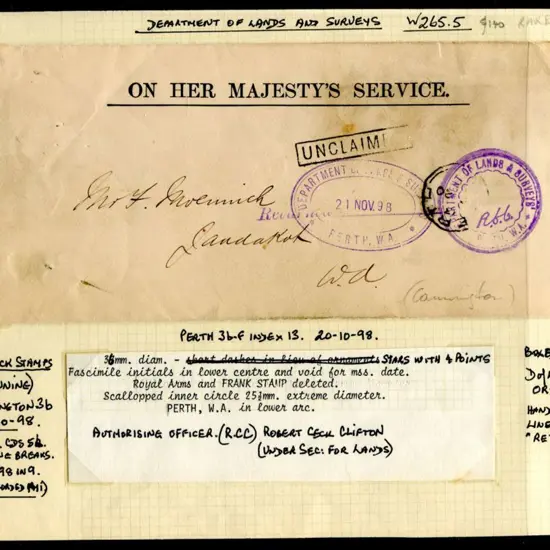 DEPARTMENT OF LANDS AND SURVEYS W265.5
ON HER MAJESTY'S SERVICE.
UNCLAIM
DEPARTMENT OF LANDS & SU
21 NOV. 98
PERTH, W.A.
ARTMENT OF LANDS & SURVEYS
W.A.
Mr F.
Jandakot
W.A.
(Cannington)
PERTH 3b-F INDEX 13. 20-10-98.
36mm. diam. - short dashes in lieu of ornaments STARS WITH 4 POINTS
Fascimile initials in lower centre and void for mss. date.
Royal Arms and FRANK STAMP deleted.
Scalloped inner circle 25½mm. extreme diameter.
PERTH, W.A. in lower arc.
AUTHORISING OFFICER. (R.C.C) ROBERT CECIL CLIFTON
(UNDER SEC: FOR LANDS)
CK STAMPS
NING)
NGTON 3b
0-98.
CDS 56.
NG BREAKS.
98 IN 9.
BOXE
D of
OR
HAND
LINE
"RE